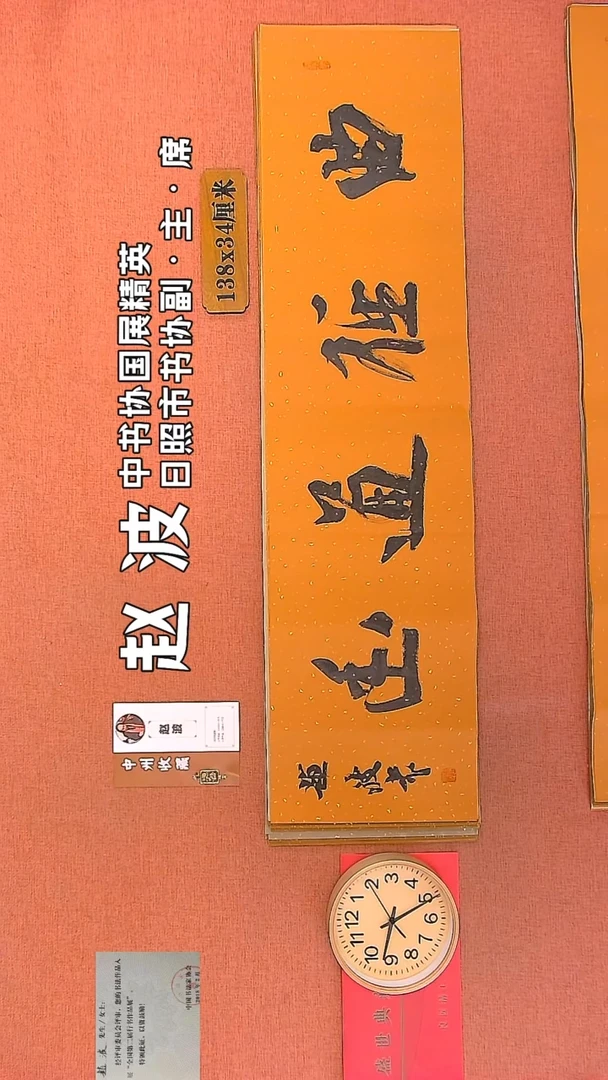 赵波
中书协国展精英
日照市书协副·主·席
138x34厘米
曲径通幽
趙波书
赵波
中州收藏
赵 波 先生/女士:
经评审委员会评审,您的书法作品入
展“全国第二届行书作品展”,
特颁此证,以资鼓励!
中国书法家协会
盛世典
12
1
2
3
4
5
6
7
8
9
10
11